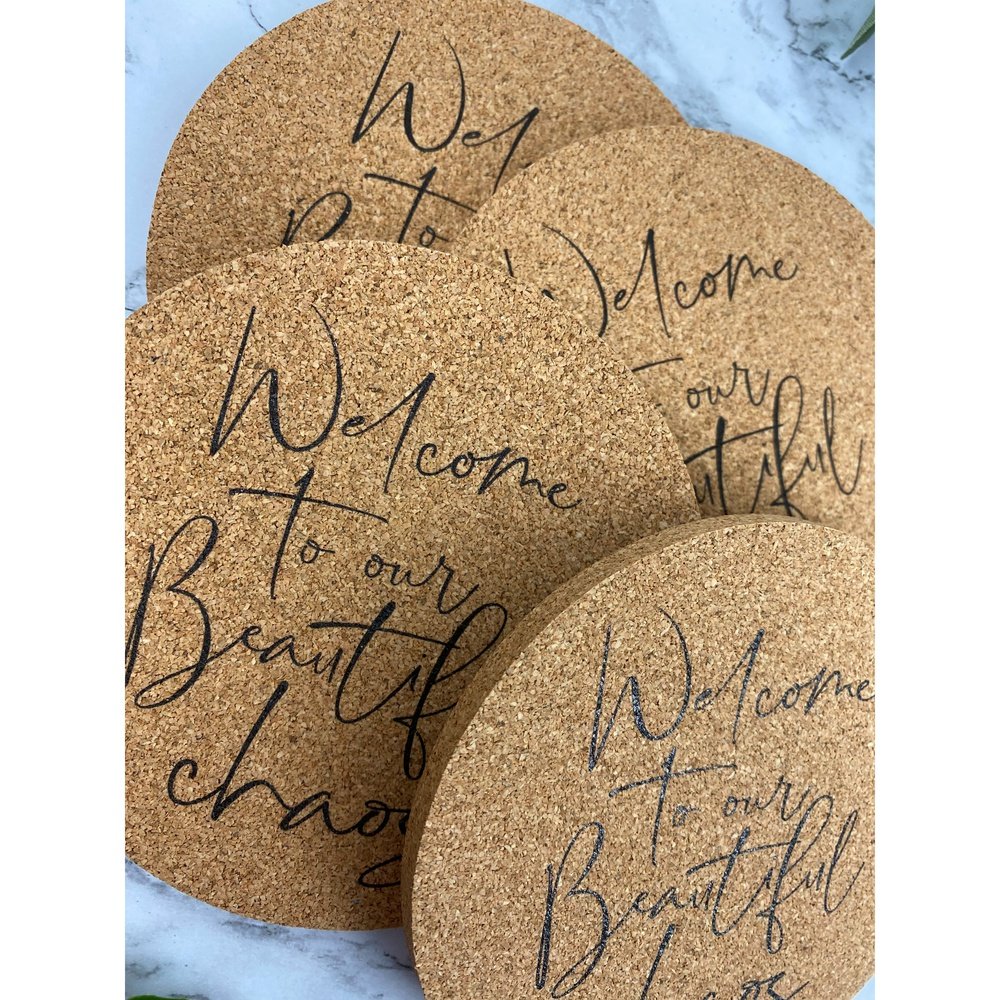 Wel
to
B
Welcome
to our
Beautiful
Welcome
to our
Beautif
chaos
Welcome
to our
Beautiful
chaos